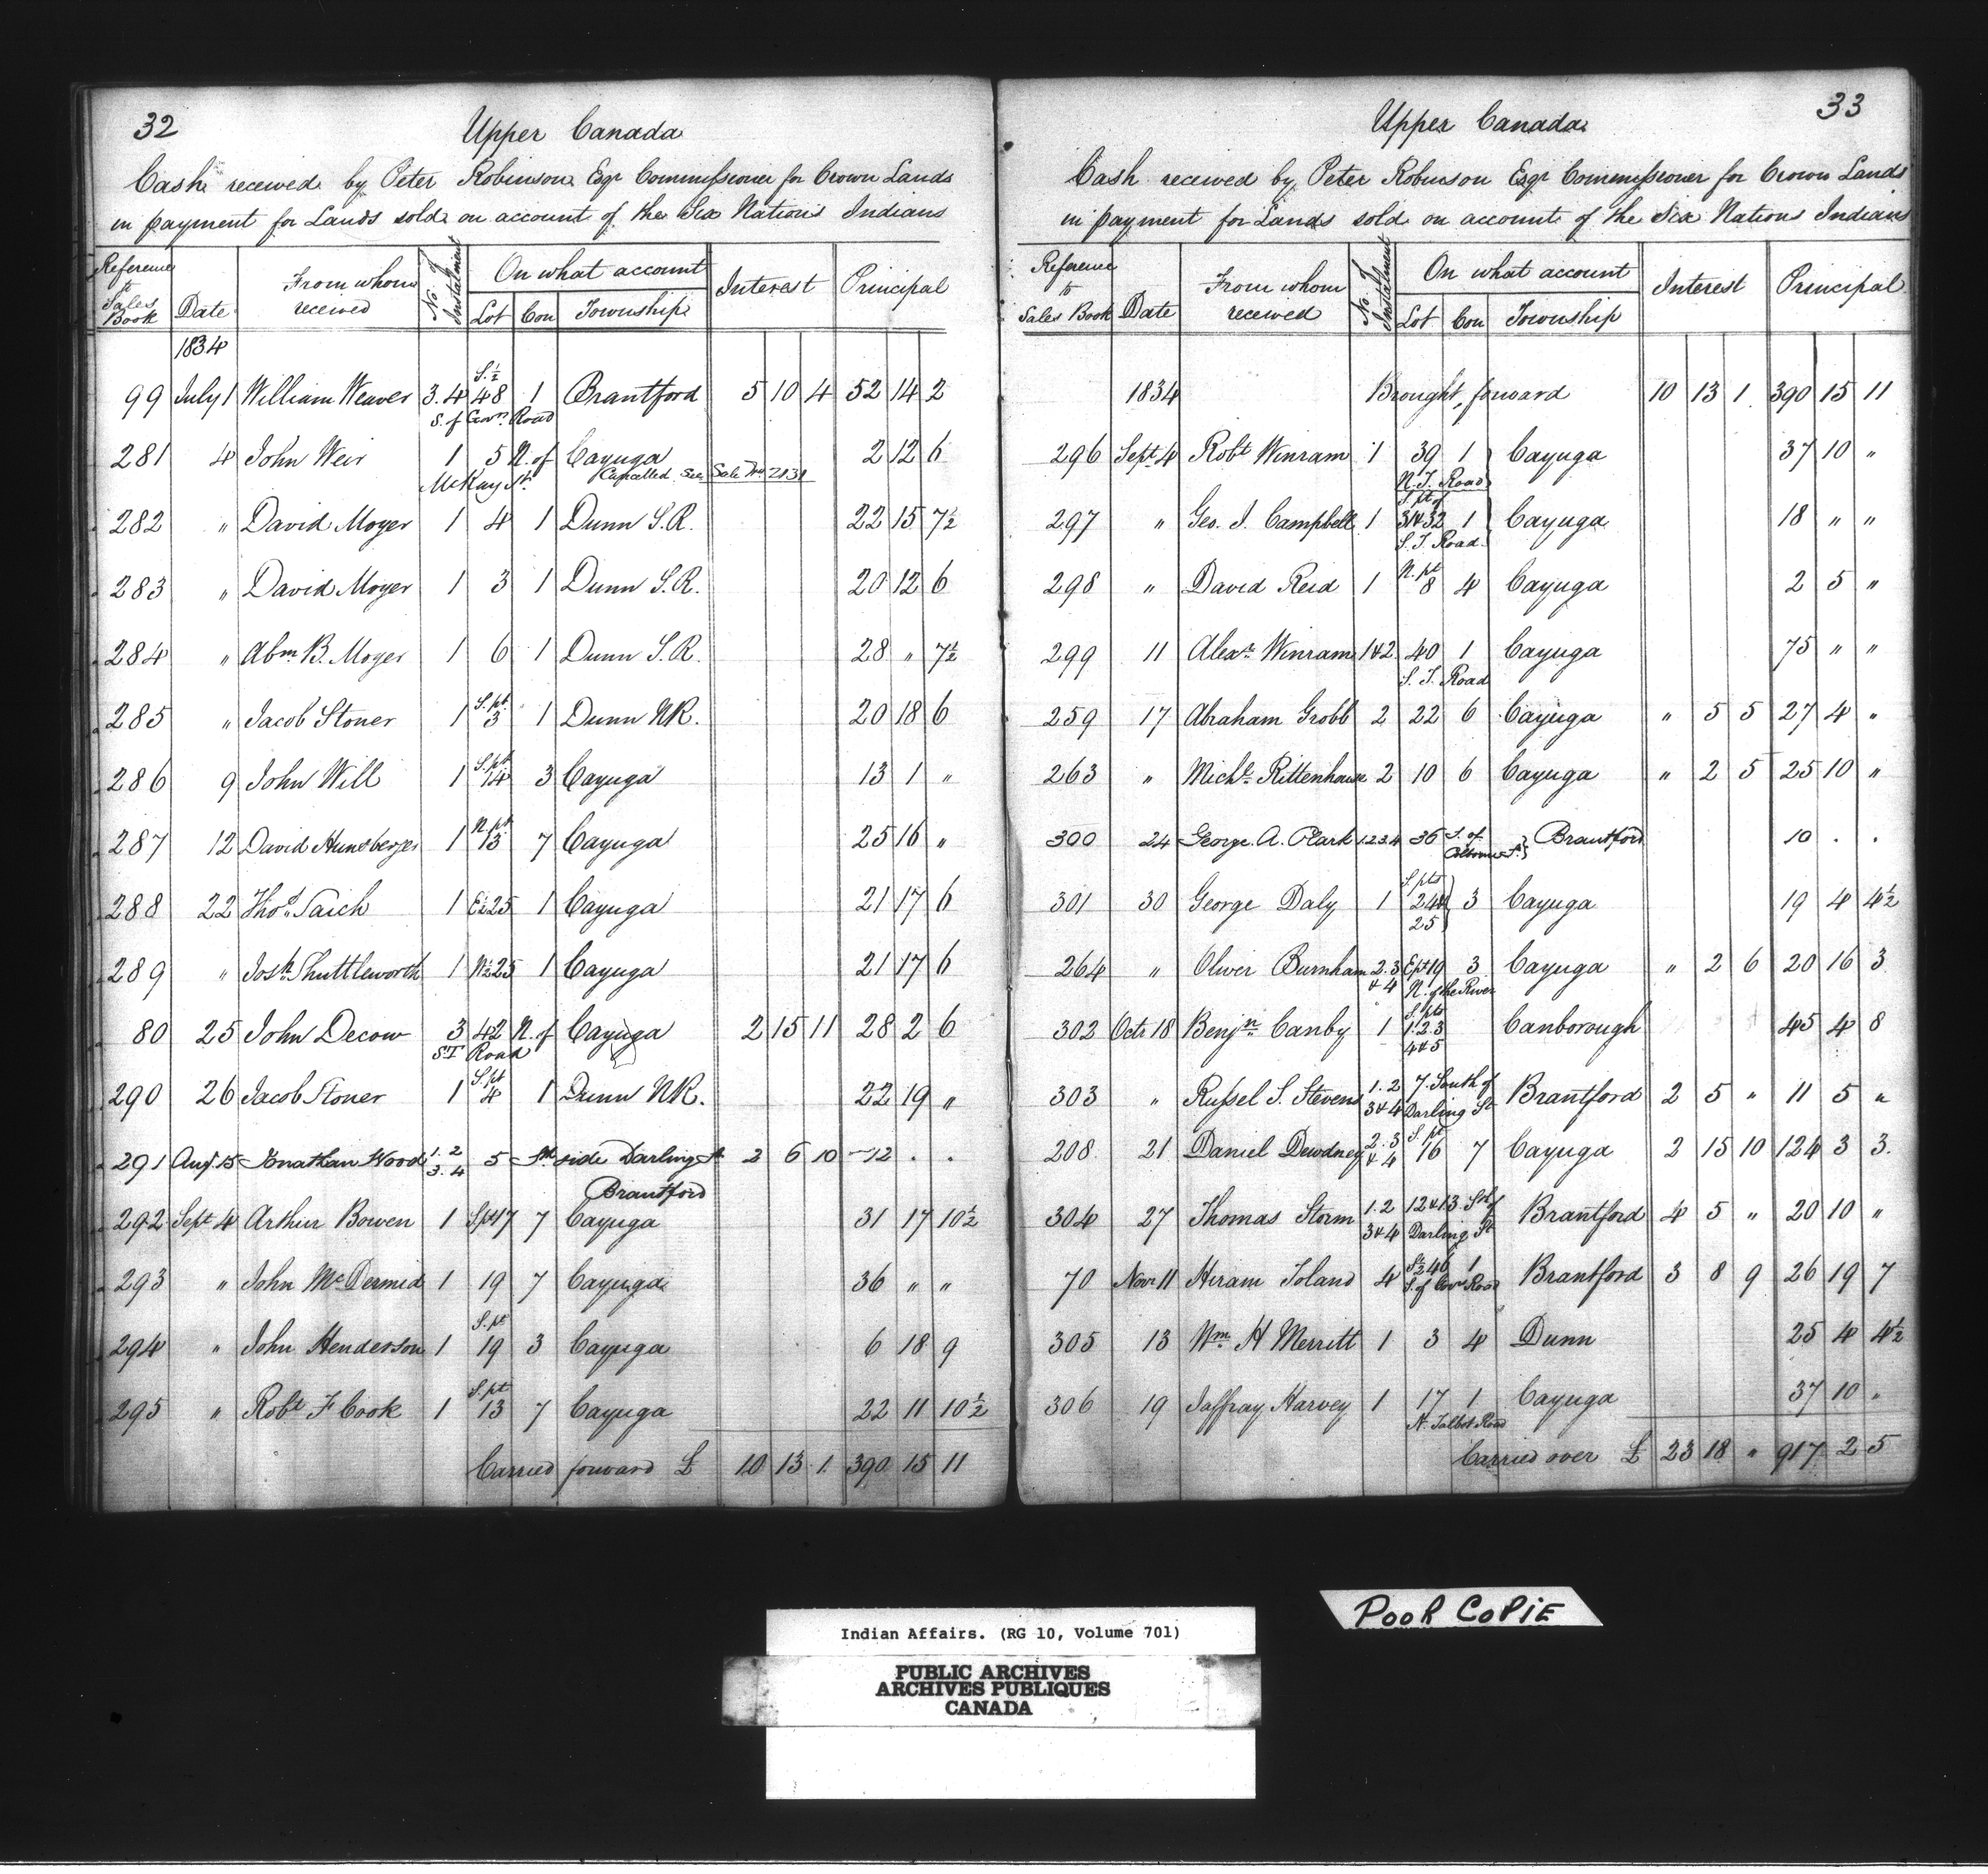 32
Upper Canada
Cash received by Peter Robinson Esqr Commissioner for Crown Lands
in payment for Lands sold on account of the Six Nations Indians
Reference to Sales Book | Date | From whom received | No. of Instalment | On what account | Lot | Con | Township | Interest | Principal
1834
99 July 1 William Weaver 3.4 S. ½ 48 1 Brantford 5 10 4 52 14 2
S. of Govn. Road
281 4 John Weir 1 5 N. of Cayuga 2 12 6
McKay St. Cancelled See Sale No 2131
282 " David Moyer 1 4 1 Dunn S.R. 22 15 7½
283 " David Moyer 1 3 1 Dunn S.R. 20 12 6
284 " Abm B. Moyer 1 6 1 Dunn S.R. 28 " 7½
285 " Jacob Stoner 1 S. pt. 3 1 Dunn NR. 20 18 6
286 9 John Will 1 S. pt 14 3 Cayuga 13 1 "
287 12 David Hunsberger 1 N. pt. 13 7 Cayuga 25 16 "
288 22 Thos Saich 1 E½ 25 1 Cayuga 21 17 6
289 " Josh. Shuttleworth 1 W½ 25 1 Cayuga 21 17 6
80 25 John Decow 3 42 N. of Cayuga 2 15 11 28 2 6
ST Road
290 26 Jacob Stoner 1 S. pt 4 1 Dunn NR. 22 19 "
291 Augt 15 Jonathan Wood 1.2 3.4 5 Sth side Darling St 2 6 10 12 . .
Brantford
292 Sept 4 Arthur Bowen 1 S pt 17 7 Cayuga 31 17 10½
293 " John McDermid 1 19 7 Cayuga 36 " "
294 " John Henderson 1 S. pt 19 3 Cayuga 6 18 9
295 " Robt F Cook 1 S. pt 13 7 Cayuga 22 11 10½
Carried forward £ 10 13 1 390 15 11
33
Upper Canada
Cash received by Peter Robinson Esqr Commissioner for Crown Lands
in payment for Lands sold on account of the Six Nations Indians
Reference to Sales Book | Date | From whom received | No. of Instalment | On what account | Lot | Con | Township | Interest | Principal
1834 Brought forward 10 13 1 390 15 11
296 Sept. 4 Robt Winram 1 39 1 Cayuga 37 10 "
N. T. Road
297 " Geo. J. Campbell 1 S. pt of 31&32 1 Cayuga 18 " "
S. T. Road
298 " David Reid 1 N. pt 8 4 Cayuga 2 5 "
299 11 Alexr Winram 1&2 40 1 Cayuga 75 " "
S. T. Road
259 17 Abraham Grobb 2 22 6 Cayuga " 5 5 27 4 "
263 " Michl Rittenhouse 2 10 6 Cayuga " 2 5 25 10 "
300 24 George A. Clark 1.2.3.4 36 S. of Colborne St. Brantford 10 . .
301 30 George Daly 1 S pts 24& 25 3 Cayuga 19 4 4½
264 " Oliver Burnham 2.3 & 4 E pt 19 3 Cayuga " 2 6 20 16 3
N. of the River
302 Octr 18 Benjn Canby 1 S. pts 1.2.3 4&5 Canborough 45 4 8
303 " Russel S. Stevens 1.2 3&4 7. South of Darling St Brantford 2 5 " 11 5 "
208 21 Daniel Dewdney 2.3 & 4 S. pt 16 7 Cayuga 2 15 10 124 3 3
304 27 Thomas Storm 1.2 3&4 12&13. Sth of Darling St Brantford 4 5 " 20 10 "
70 Novr 11 Hiram Toland 4 S½ 46 1 Brantford 3 8 9 26 19 7
S. of Govr Road
305 13 Wm. H Merritt 1 3 4 Dunn 25 4 4½
306 19 Jaffray Harvey 1 17 1 Cayuga 37 10 "
N. Talbot Road
Carried over £ 23 18 " 917 2 5
Indian Affairs. (RG 10, Volume 701)
PUBLIC ARCHIVES
ARCHIVES PUBLIQUES
CANADA
POOR COPIE